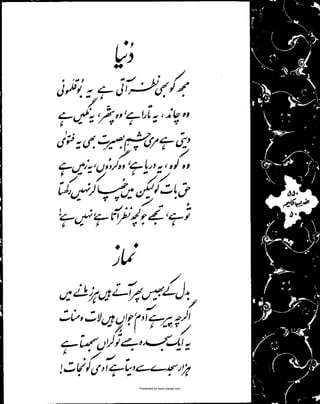 دُنیا
مجھ کو بھی نظر آتی ہے یہ بوقلمونی
وہ چاند، یہ تارا ہے، وہ پتھر، یہ نگیں ہے
دیتی ہے مری چشمِ بصیرت بھی یہ فتویٰ
وہ کوہ، یہ دریا ہے، وہ گردوں، یہ زمیں ہے
حق بات کو لیکن میں چھپا کر نہیں رکھتا
تُو ہے، تجھے جو کچھ نظر آتا ہے، نہیں ہے!
نماز
بدل کے بھیس پھر آتے ہیں ہر زمانے میں
اگرچہ پیر ہے آدم، جواں ہیں لات و منات
یہ ایک سجدہ جسے تُو گراں سمجھتا ہے
ہزار سجدے سے دیتا ہے آدمی کو نجات!
۵۵۰
ضربِ کلیم
۵۰
Presented by www.ziaraat.com